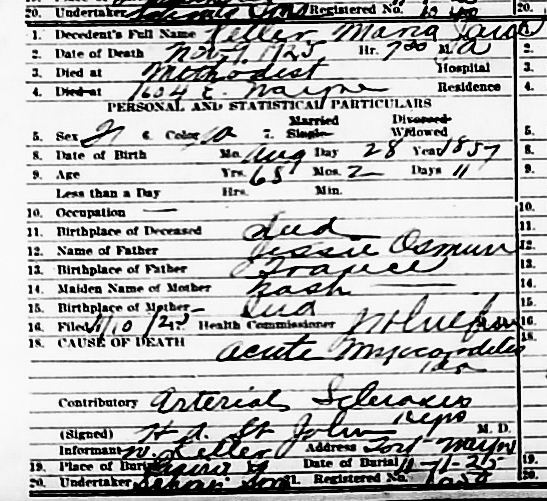 20. Undertaker Sons Registered No. 20.
1. Decedent's Full Name Keller Maria 1.
2. Date of Death Nov. 9, 1925 Hr. 7 00 M. A 2.
3. Died at Methodist Hospital 3.
4. Died at 1604 E. Wayne Residence 4.
PERSONAL AND STATISTICAL PARTICULARS
5. Sex 6. Color W 7. Single Married Widowed Divorced 5.
8. Date of Birth Mo. Aug Day 28 Year 1857 8.
9. Age Yrs. 68 Mos. 2 Days 11 9.
Less than a Day Hrs. Min.
10. Occupation — 10.
11. Birthplace of Deceased Ind 11.
12. Name of Father Jessie Osmun 12.
13. Birthplace of Father France 13.
14. Maiden Name of Mother Nash 14.
15. Birthplace of Mother Ind 15.
16. Filed 11/10/25 Health Commissioner 16.
18. CAUSE OF DEATH 18.
Acute Myocarditis
Contributory Arterial Sclerosis
(Signed) H. A. St John M. D.
Informant W. Keller Address Fort Wayne
19. Place of Burial Date of Burial 11-11-25 19.
20. Undertaker Sons 21. Registered No. 20.